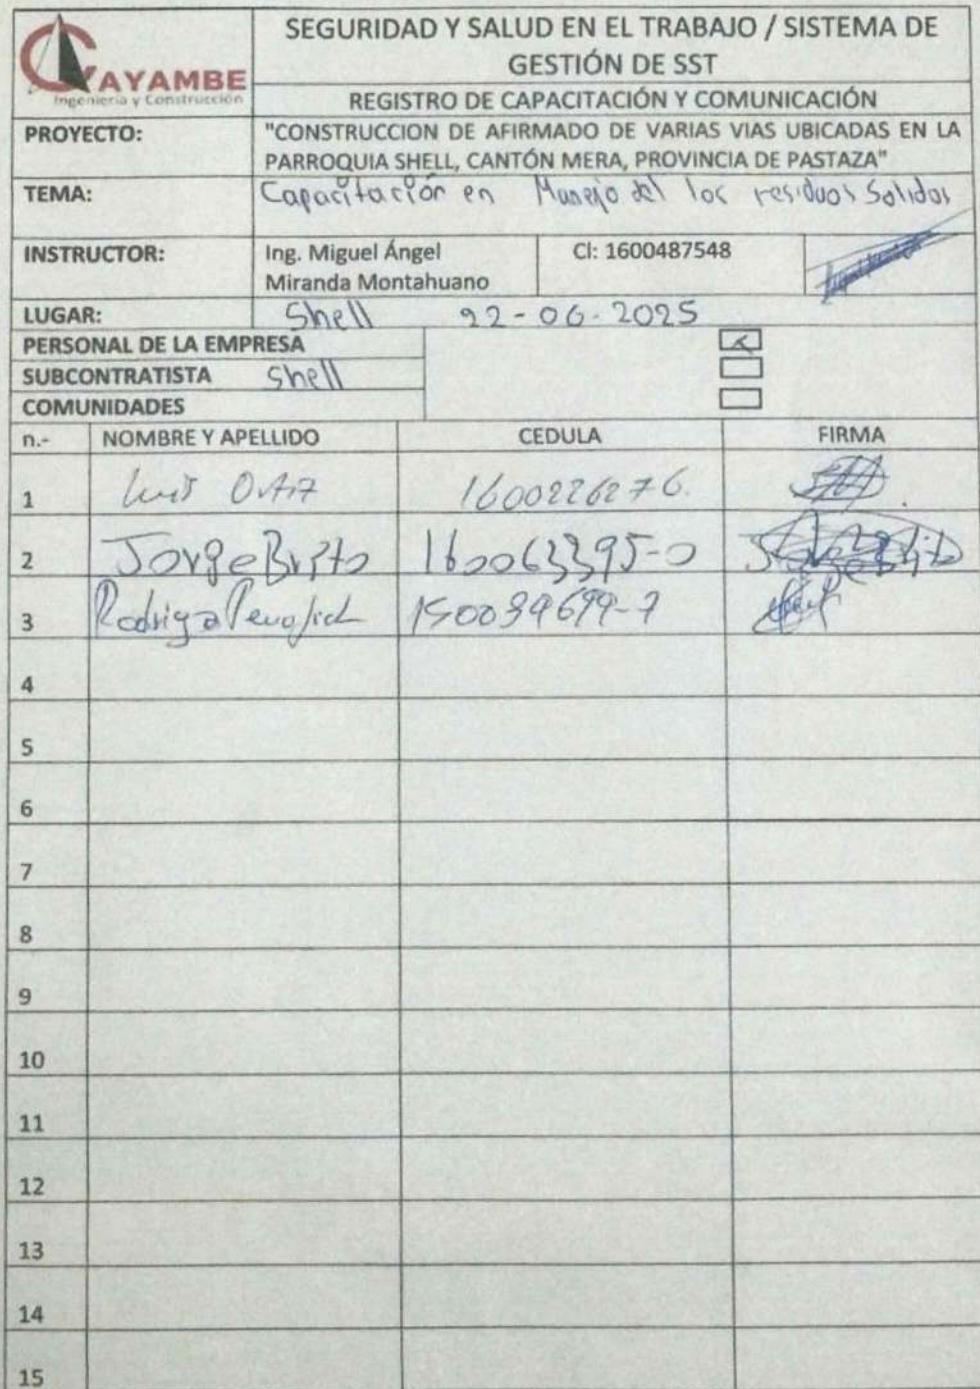 CAYAMBE
Ingeniería y Construcción
SEGURIDAD Y SALUD EN EL TRABAJO / SISTEMA DE
GESTIÓN DE SST
REGISTRO DE CAPACITACIÓN Y COMUNICACIÓN
PROYECTO: "CONSTRUCCION DE AFIRMADO DE VARIAS VIAS UBICADAS EN LA
PARROQUIA SHELL, CANTÓN MERA, PROVINCIA DE PASTAZA"
TEMA: Capacitación en Manejo del los residuos Solidos
INSTRUCTOR: Ing. Miguel Ángel CI: 1600487548
Miranda Montahuano
LUGAR: Shell 22-06-2025
PERSONAL DE LA EMPRESA
SUBCONTRATISTA Shell
COMUNIDADES
n.- NOMBRE Y APELLIDO CEDULA FIRMA
1 Luis Ortiz 1600226276.
2 Jorge Brito 160063395-0
3 Rodrigo 150039699-7
4
5
6
7
8
9
10
11
12
13
14
15